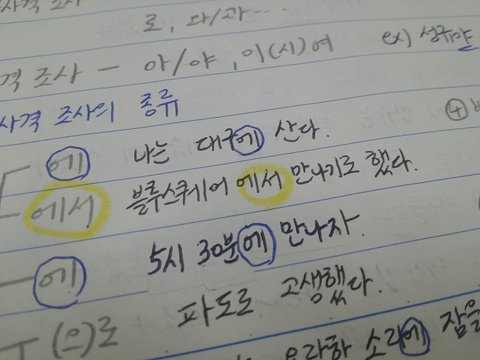 로, 와/과…
격 조사 – 아/야, 이(시)여 ex) 성규야
사격 조사의 종류
에 나는 대구에 산다.
에서 블루스퀘어에서 만나기로 했다.
에 5시 30분에 만나자.
(으)로 파도로 고생했다.
소리에 잠을